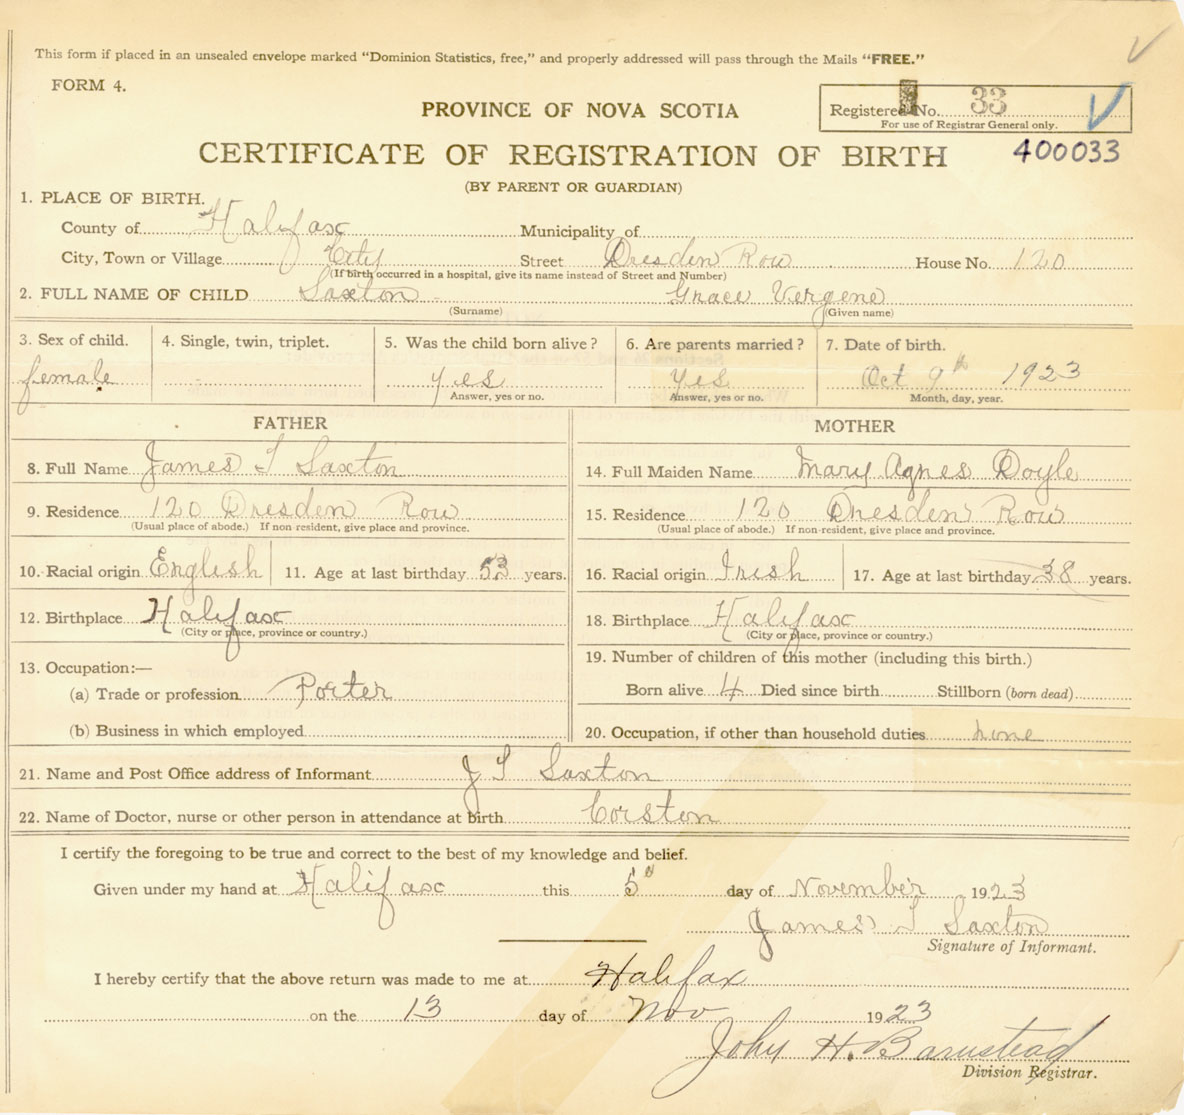 This form if placed in an unsealed envelope marked "Dominion Statistics, free," and properly addressed will pass through the Mails "FREE."
FORM 4.
PROVINCE OF NOVA SCOTIA
Registered No. 33
For use of Registrar General only.
CERTIFICATE OF REGISTRATION OF BIRTH 400033
(BY PARENT OR GUARDIAN)
1. PLACE OF BIRTH.
County of Halifax Municipality of
City, Town or Village City Street Dresden Row House No. 120
(If birth occurred in a hospital, give its name instead of Street and Number)
2. FULL NAME OF CHILD Saxton Grace Vergene
(Surname) (Given name)
3. Sex of child. 4. Single, twin, triplet. 5. Was the child born alive? 6. Are parents married? 7. Date of birth.
female yes yes Oct 9th 1923
Answer, yes or no. Answer, yes or no. Month, day, year.
FATHER MOTHER
8. Full Name James S Saxton 14. Full Maiden Name Mary Agnes Doyle
9. Residence 120 Dresden Row 15. Residence 120 Dresden Row
(Usual place of abode.) If non resident, give place and province. (Usual place of abode.) If non-resident, give place and province.
10. Racial origin English 11. Age at last birthday 53 years. 16. Racial origin Irish 17. Age at last birthday 38 years.
12. Birthplace Halifax 18. Birthplace Halifax
(City or place, province or country.) (City or place, province or country.)
13. Occupation:— 19. Number of children of this mother (including this birth.)
(a) Trade or profession Porter Born alive 4 Died since birth Stillborn (born dead)
(b) Business in which employed 20. Occupation, if other than household duties none
21. Name and Post Office address of Informant J S Saxton
22. Name of Doctor, nurse or other person in attendance at birth Corston
I certify the foregoing to be true and correct to the best of my knowledge and belief.
Given under my hand at Halifax this 5th day of November 1923
James S Saxton
Signature of Informant.
I hereby certify that the above return was made to me at Halifax
on the 13 day of Nov 1923
John H. Barnstead
Division Registrar.